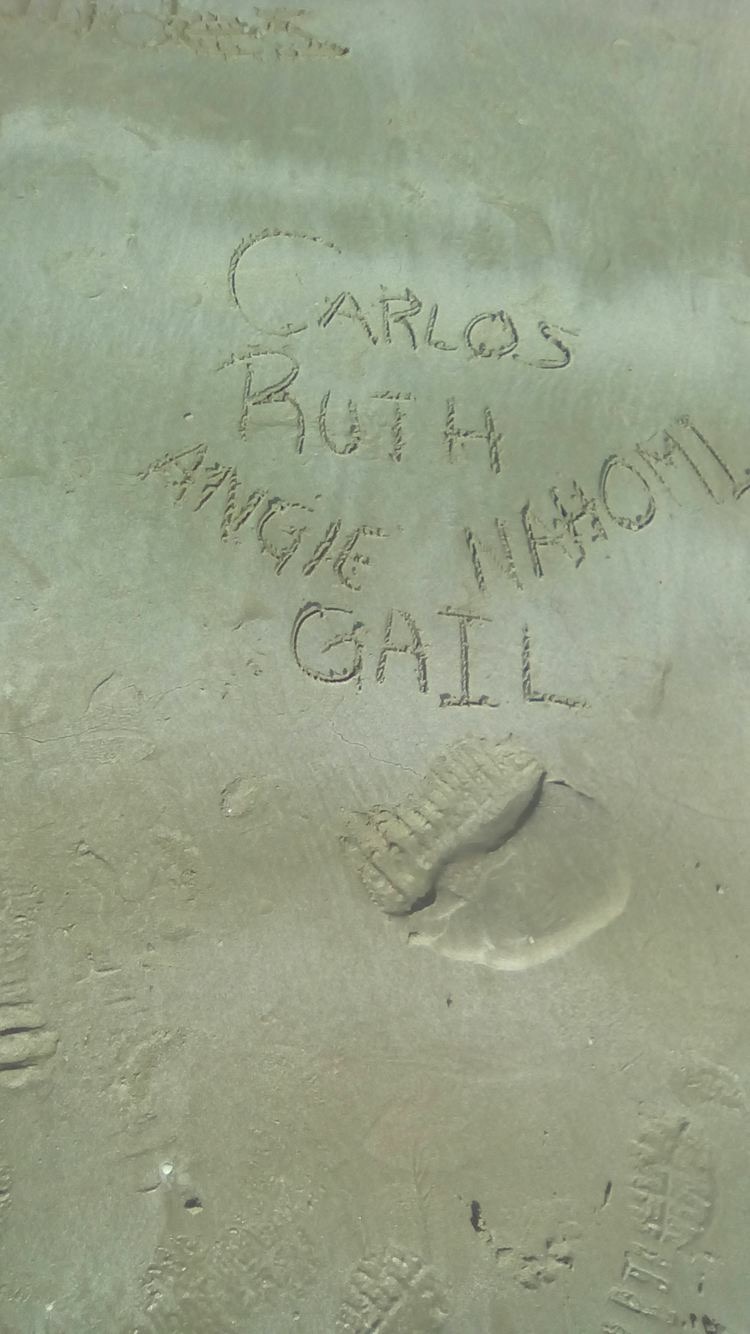 CARLOS
RUTH
ANGIE NAHOMI
GAIL